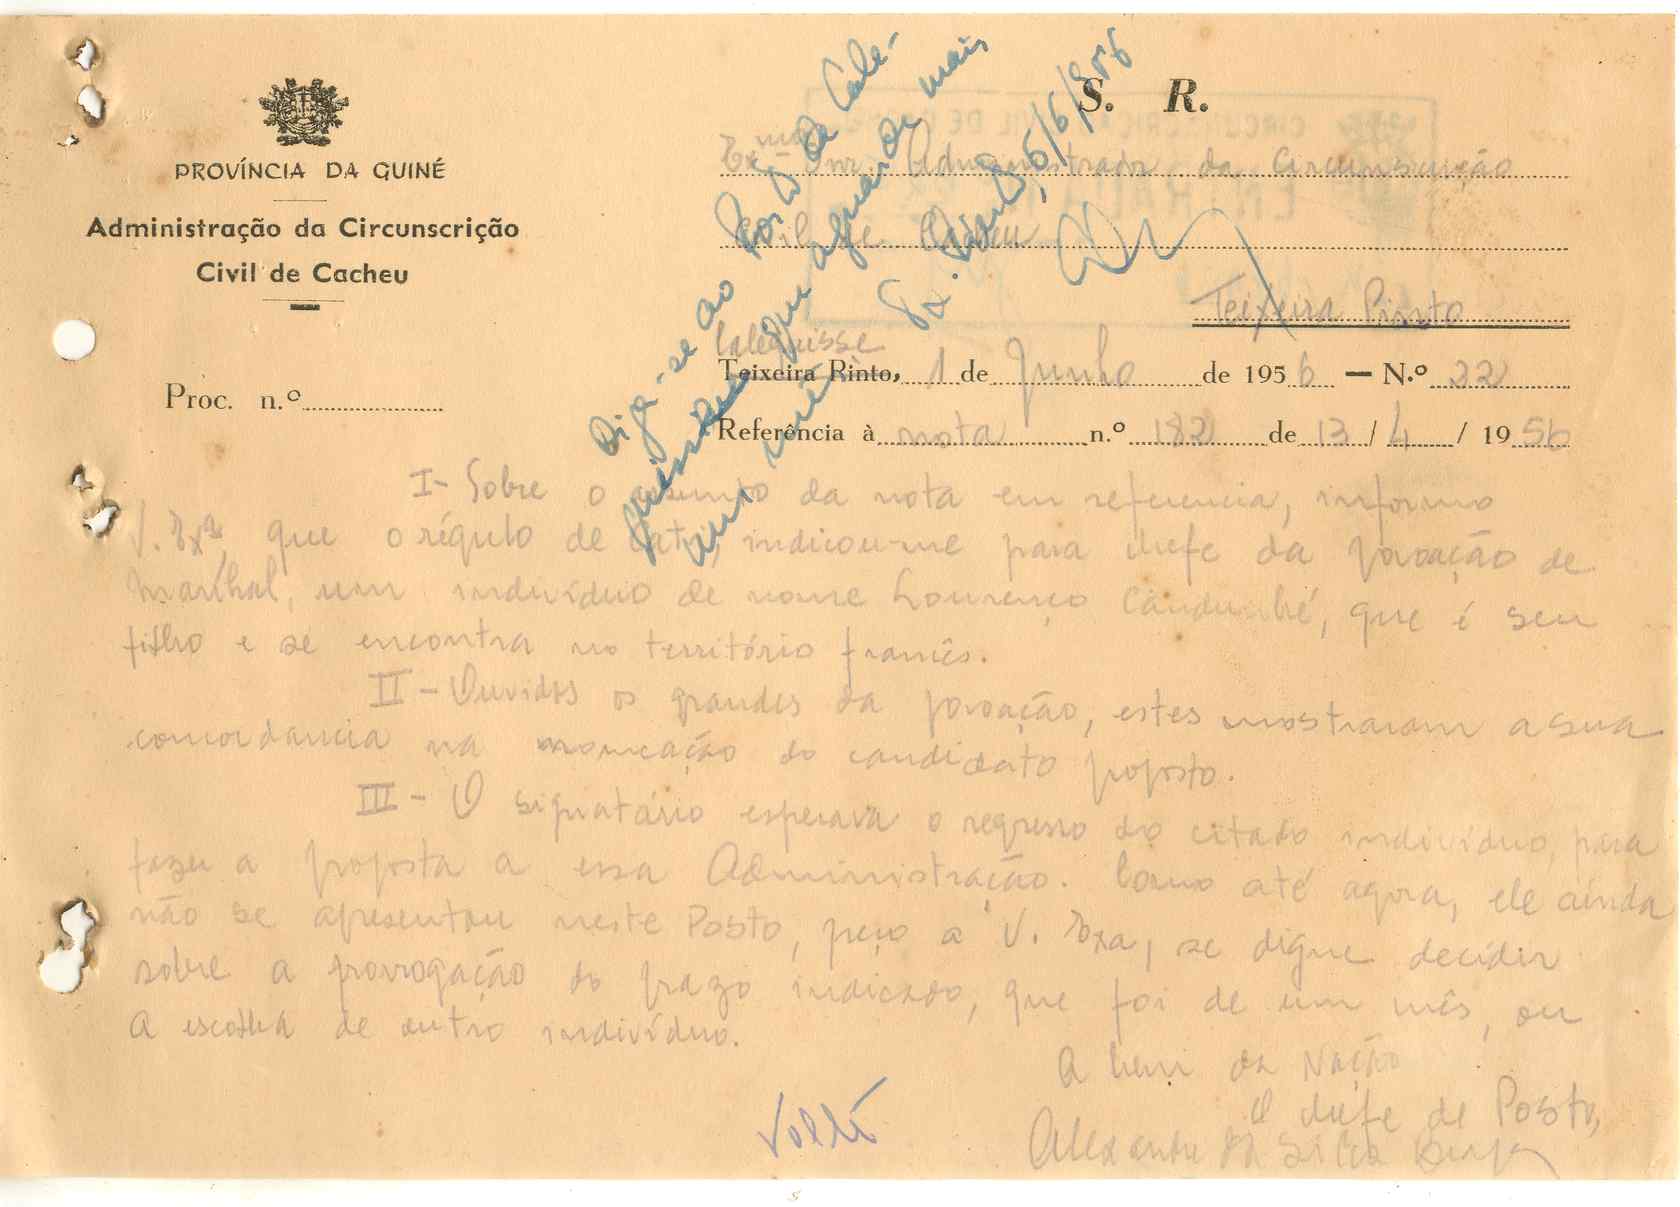 S. R.
PROVÍNCIA DA GUINÉ
Administração da Circunscrição
Civil de Cacheu
Exmo Snr Administrador da Circunscrição
Civil de Cacheu
Teixeira Pinto
Calequisse
Teixeira Pinto, 1 de Junho de 1956 — N.º 22
Proc. n.º
Referência à nota n.º 182 de 13/4/1956
Diga-se ao Posto de Cale-
quisse que aguarde mais
um mês
5/6/956
I - Sobre o assunto da nota em referencia, informo
V. Exª, que o régulo de indicou-me para chefe da povoação de
um indivíduo de nome Lourenço que é seu
filho e se encontra no território francês.
II - Ouvidos os grandes da povoação, estes mostraram a sua
concordancia na nomeação do candidato proposto.
III - O signatário esperava o regresso do citado indivíduo, para
fazer a proposta a essa Administração. Como até agora, ele ainda
não se apresentou neste Posto, peço a V. Exa, se digne decidir
sobre a prorrogação do prazo indicado, que foi de um mês, ou
a escolha de outro indivíduo.
A bem da Nação
O chefe de Posto,
Alexandre da Silva